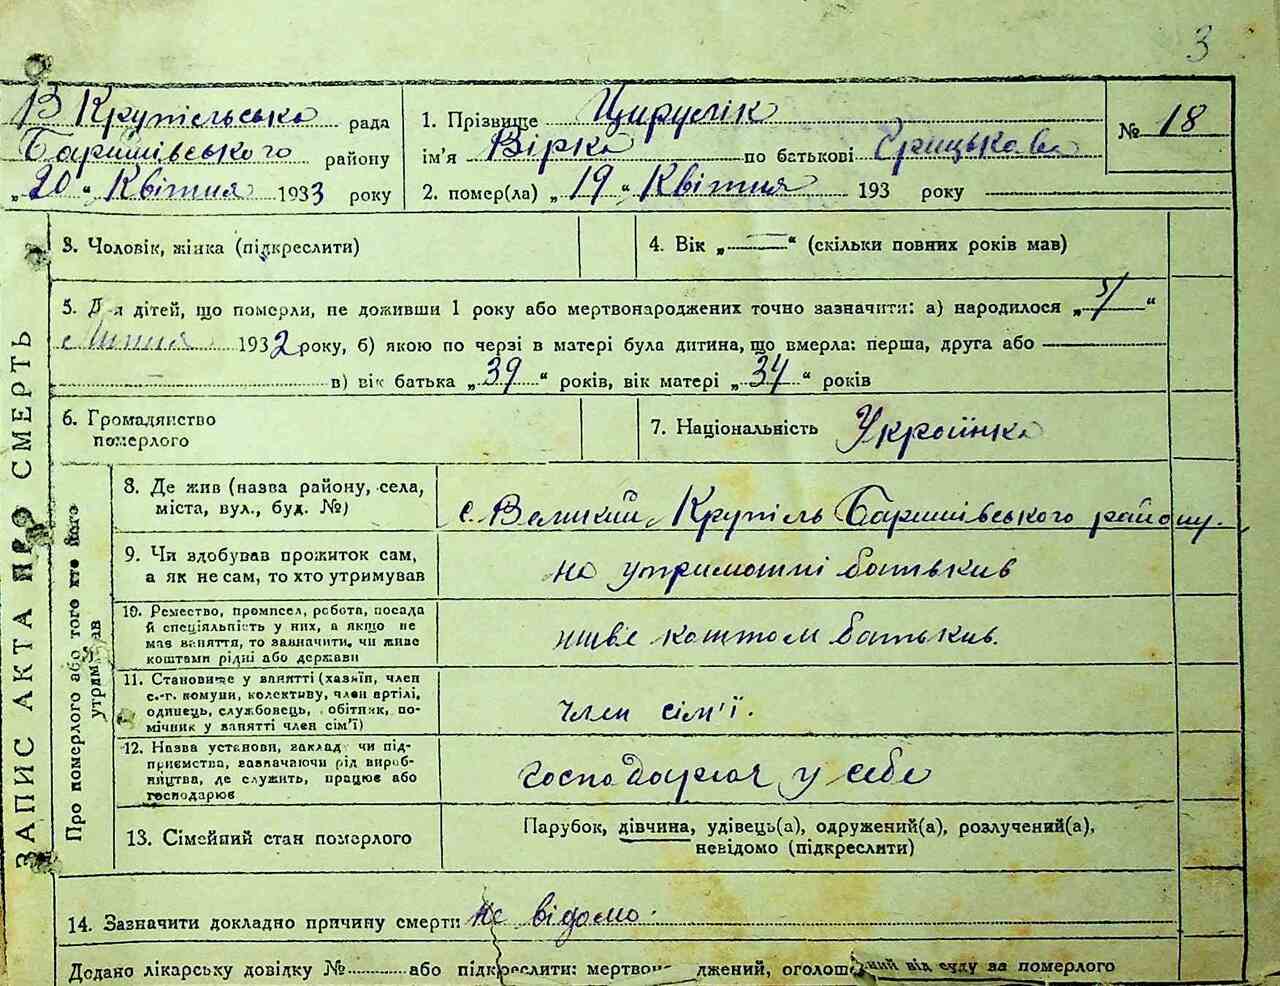 3
В Крупільська рада
Баришівського району
„20“ Квітня 1933 року
1. Прізвище Цируслік
ім'я Вірка по батькові Грицькова
2. помер(ла) „19“ Квітня 193 року
№ 18
ЗАПИС АКТА ПРО СМЕРТЬ
3. Чоловік, жінка (підкреслити)
4. Вік „—“ (скільки повних років мав)
5. Для дітей, що померли, не доживши 1 року або мертвонароджених точно зазначити: а) народилося „5/“
Липня 1932 року, б) якою по черзі в матері була дитина, що вмерла: перша, друга або
в) вік батька „39“ років, вік матері „34“ років
6. Громадянство
померлого
7. Національність Українка
Про померлого або того хто його
утримував
8. Де жив (назва району, села,
міста, вул., буд. №)
с. Великий Крупіль Баришівського району.
9. Чи здобував прожиток сам,
а як не сам, то хто утримував
на утриманні батьків
10. Ремество, промисел, робота, посада
й спеціяльність у них, а якщо не
мав заняття, то зазначити, чи живе
коштами рідні або держави
живе коштом батьків.
11. Становище у занятті (хазяїн, член
с.-г. комуни, колективу, член артілі,
одинець, службовець, робітник, по-
мічник у занятті член сім'ї)
член сім'ї.
12. Назва установи, заклад чи під-
приємства, зазначаючи рід вироб-
ництва, де служить, працює або
господарює
господарюют у себе
13. Сімейний стан померлого
Парубок, дівчина, удівець(а), одружений(а), розлучений(а),
невідомо (підкреслити)
14. Зазначити докладно причину смерти не відомо.
Додано лікарську довідку № або підкреслити: мертвонароджений, оголошений від суду за померлого